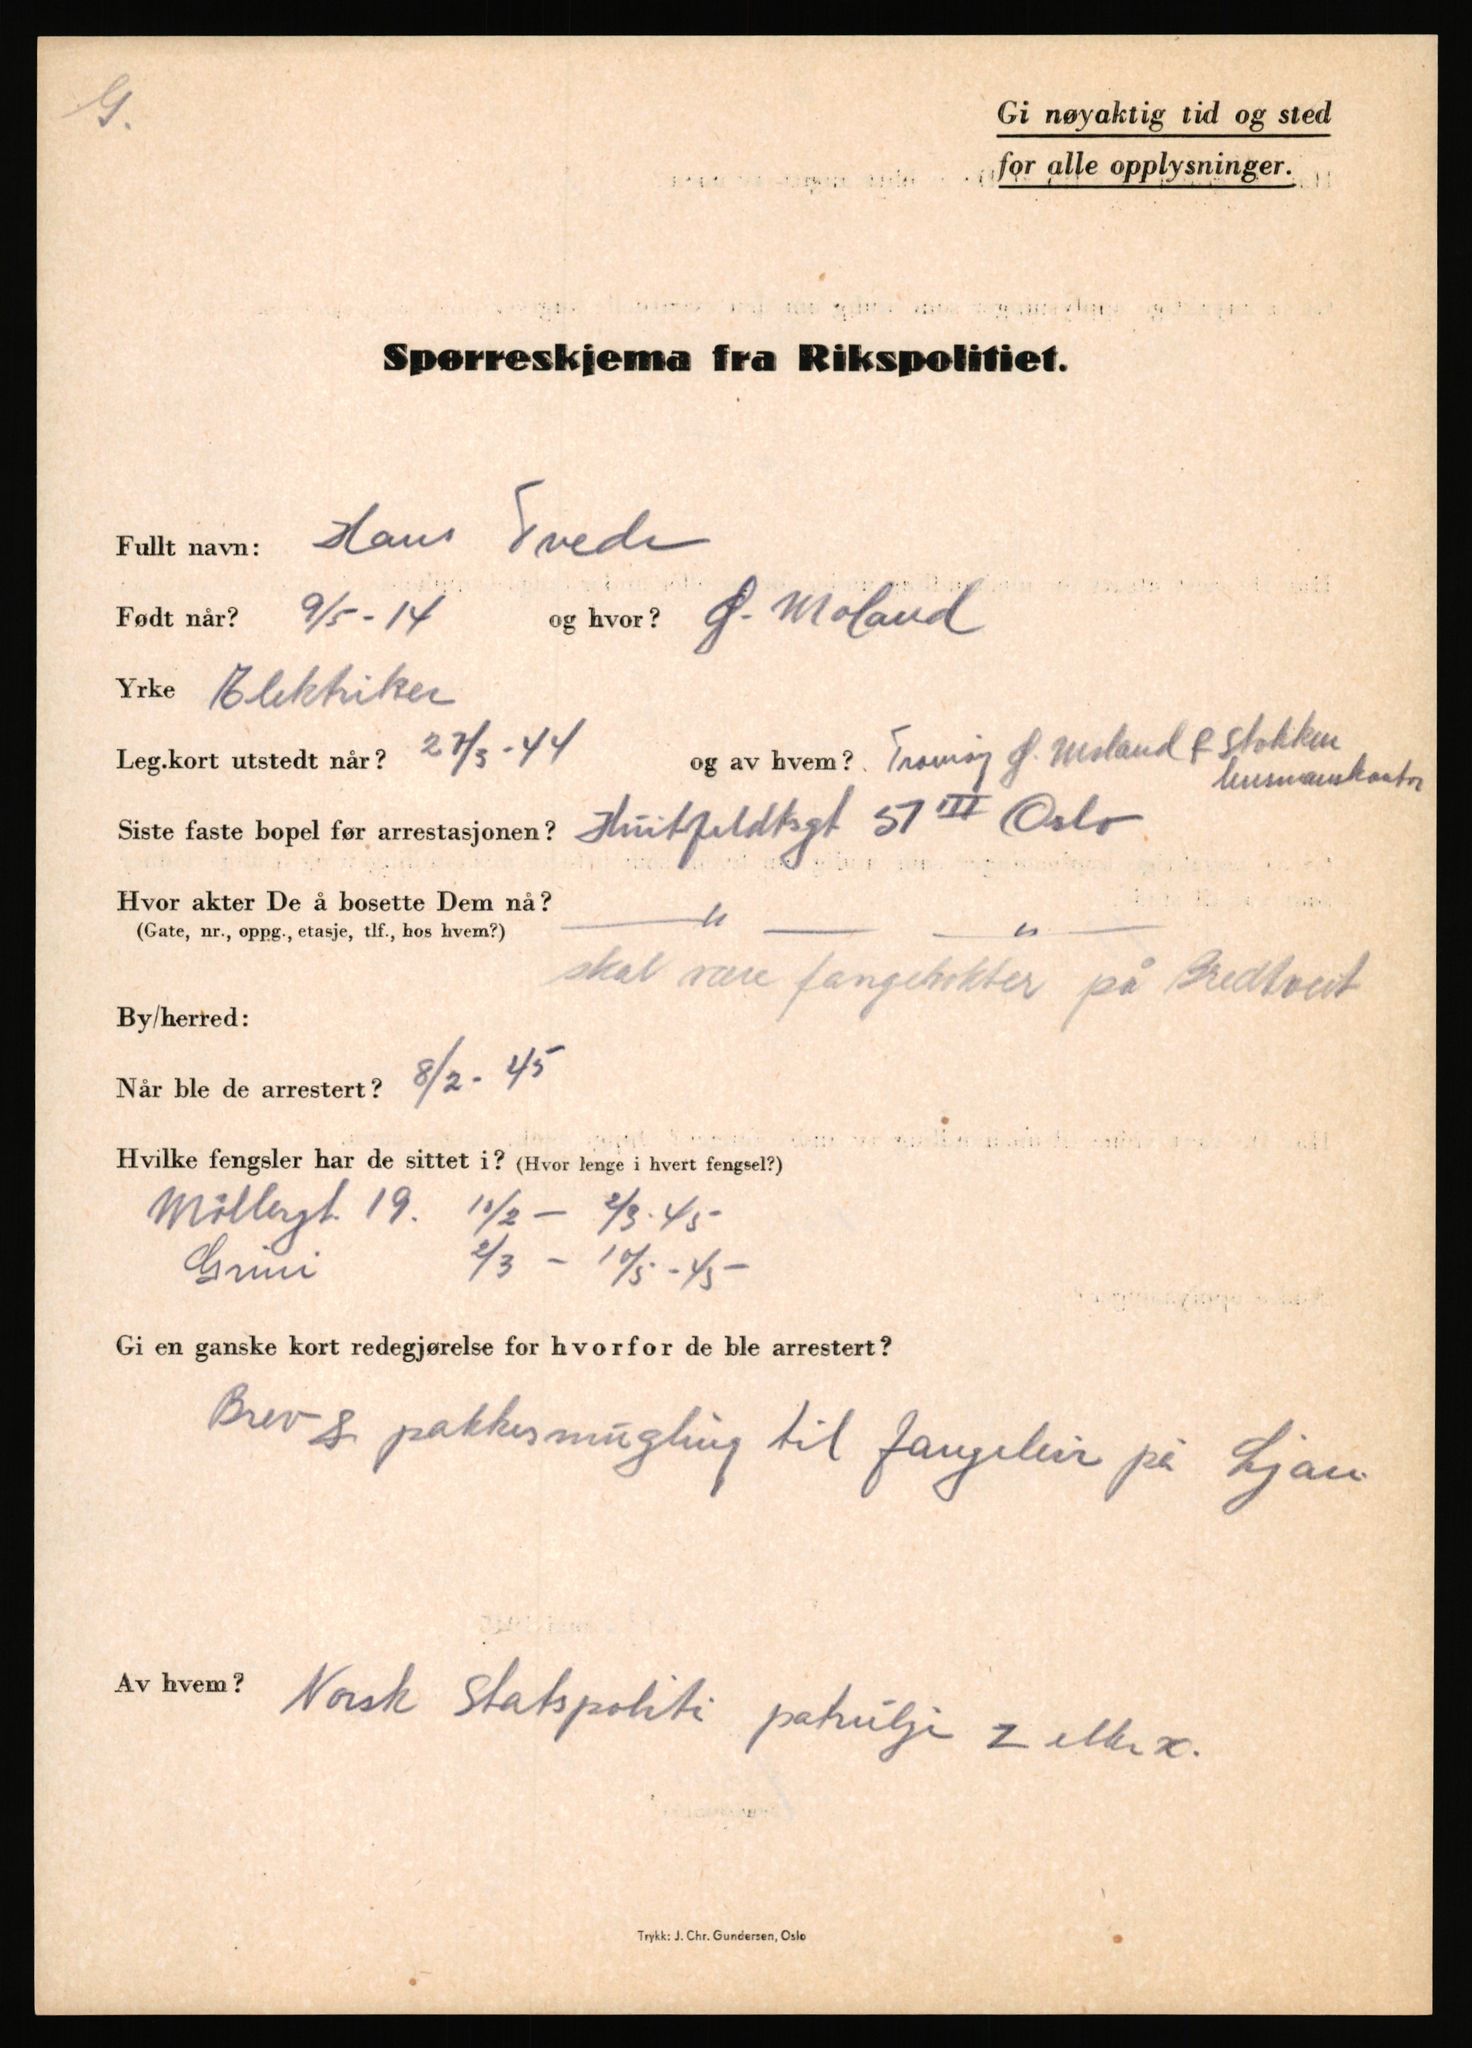 G.
Gi nøyaktig tid og sted
for alle opplysninger.
Spørreskjema fra Rikspolitiet.
Fullt navn: Hans Tvede
Født når? 9/5 - 14 og hvor? Ø. Moland
Yrke Elektriker
Leg.kort utstedt når? 27/3 - 44 og av hvem? Tromøy Ø. Moland & Stokken
lensmannskontor
Siste faste bopel før arrestasjonen? Huitfeldtsgt 51 III Oslo
Hvor akter De å bosette Dem nå? — " — — " —
(Gate, nr., oppg., etasje, tlf., hos hvem?)
skal være fangevokter på Bredtveit
By/herred:
Når ble de arrestert? 8/2 - 45
Hvilke fengsler har de sittet i? (Hvor lenge i hvert fengsel?)
Möllergt. 19. 10/2 — 2/3 - 45
Grini 2/3 - 10/5 - 45
Gi en ganske kort redegjørelse for hvorfor de ble arrestert?
Brev & pakkesmugling til fangeleir på Ljan.
Av hvem? Norsk Statspoliti patrulje Z eller x.
Trykk: J. Chr. Gundersen, Oslo